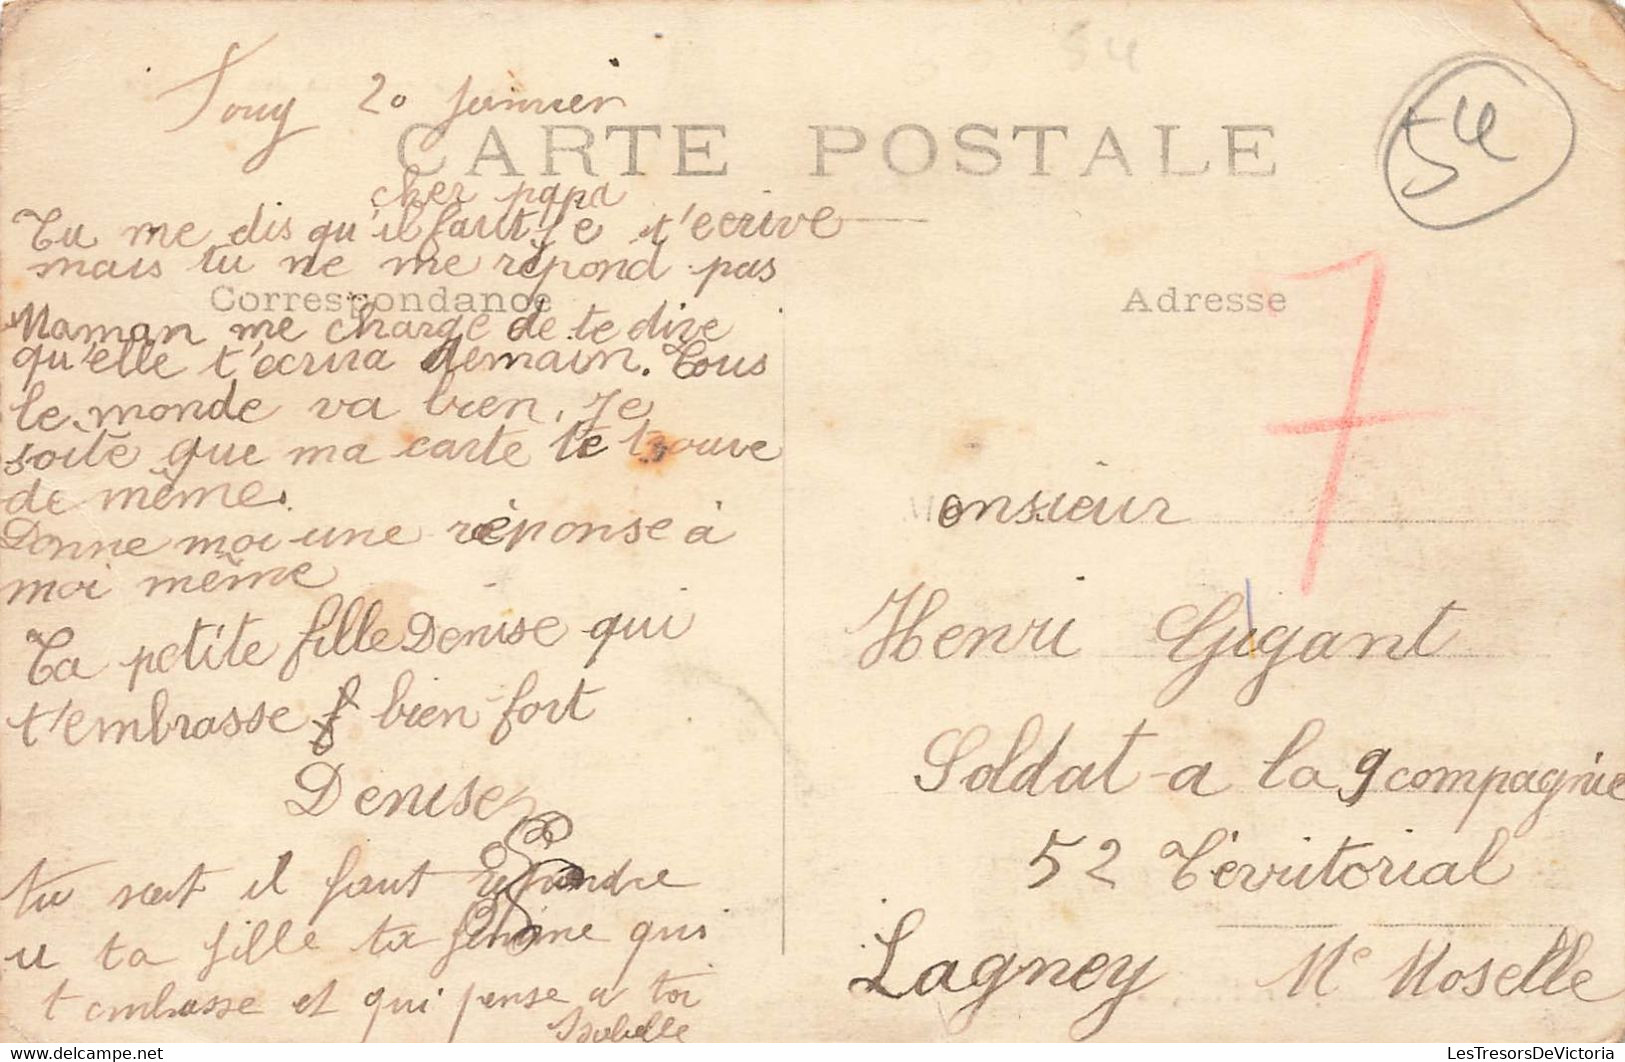 54
54
20 Janvier
CARTE POSTALE
cher papa
Tu me dis qu'il faut Je t'ecrive
mais tu ne me répond pas
Correspondance
Maman me charge de te dire
qu'elle t'écrira demain. Tous
le monde va bien. Je
soite que ma carte te trouve
de même.
Donne moi une réponse à
moi même
Ta petite fille Denise qui
t'embrasse bien fort
Denise
tu sait il faut répondre
a ta fille ta femme qui
t embrasse et qui pense a toi
Isabelle
Adresse
7
Monsieur
Henri Gigant
Soldat a la 9 compagnie
52 Térritorial
Lagney Me Moselle
LesTresorsDeVictoria
delcampe.net